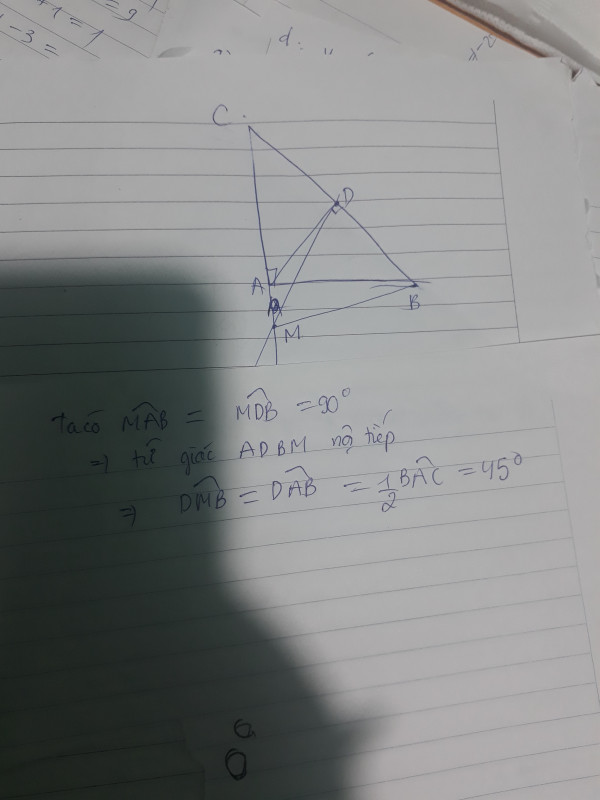 +1 = 1
= 9
-3 =
d:
x-2
C
D
A
B
M
Ta có MAB = MDB = 90°
=> tứ giác ADBM nội tiếp
=> DMB = DAB = 1/2 BAC = 45°